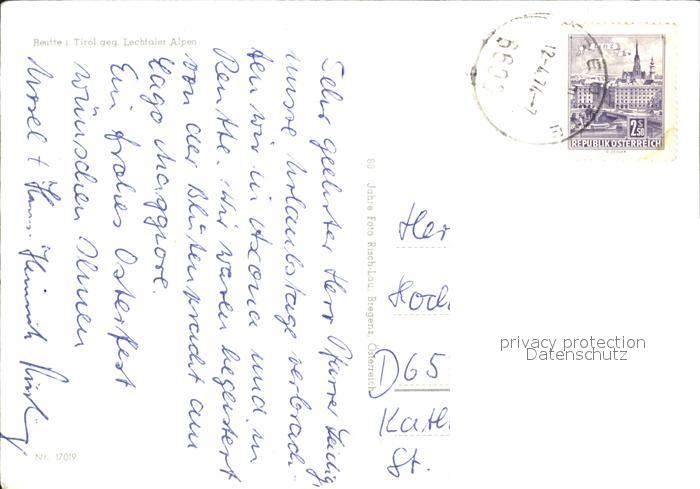 Reutte i. Tirol geg. Lechtaler Alpen
Sehr geehrter Herr Pfarrer Heilig,
unsere Urlaubstage verbrach-
ten wir in Ascona und in
Reutte. Wir waren begeistert
von der Blütenpracht am
Lago Maggiore.
Ein frohes Osterfest
wünschen Ihnen
Ursel + Hans-Heinrich
Nr. 17019
80 Jahre Foto Risch-Lau, Bregenz, Österreich
6600
12.4.71-7
2 S 50
REPUBLIK ÖSTERREICH
Her
Hoch
D 65
Kath
St.
privacy protection
Datenschutz